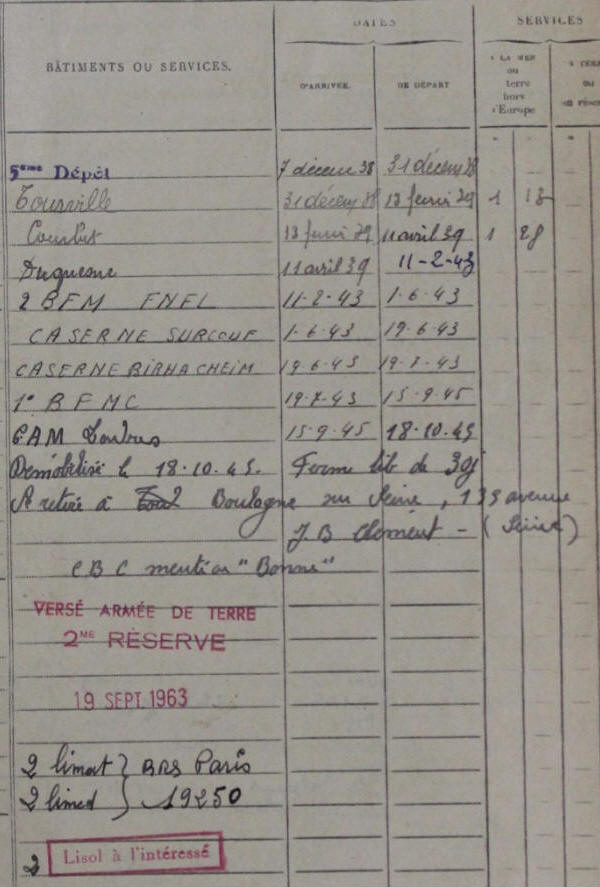 DATES SERVICES
BÂTIMENTS OU SERVICES. D'ARRIVÉE. DE DÉPART À LA MER ou terre hors d'Europe
5ème Dépôt 7 décem 38 31 décem 38
Tourville 31 décem 38 13 fevri 39 1 13
Courbet 13 fevri 39 11 avril 39 1 28
Duquesne 11 avril 39 11-2-43
2 BFM FNFL 11-2-43 1-6-43
CASERNE SURCOUF 1-6-43 19-6-43
CASERNE BIRHACHEIM 19-6-43 19-7-43
1° B F M C 19-7-43 15-9-45
CAM 15-9-45 18-10-45
Démobilisé le 18-10-45. Ferme lib de 30j
Se retire à Boulogne sur Seine, 135 avenue
J B Clément - (Seine)
C B C mention "Bonne"
VERSÉ ARMÉE DE TERRE
2ME RÉSERVE
19 SEPT 1963
2 limat } BRS Paris
2 limed } 19250
2 Lisol à l'intéressé